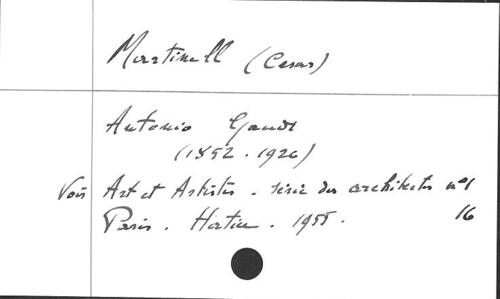 Martinell (Cesar)
Antonio Gaudi
(1852 - 1926)
Voir Art et Artistes - série des architectes n°1
Paris. Hatier. 1955. 16